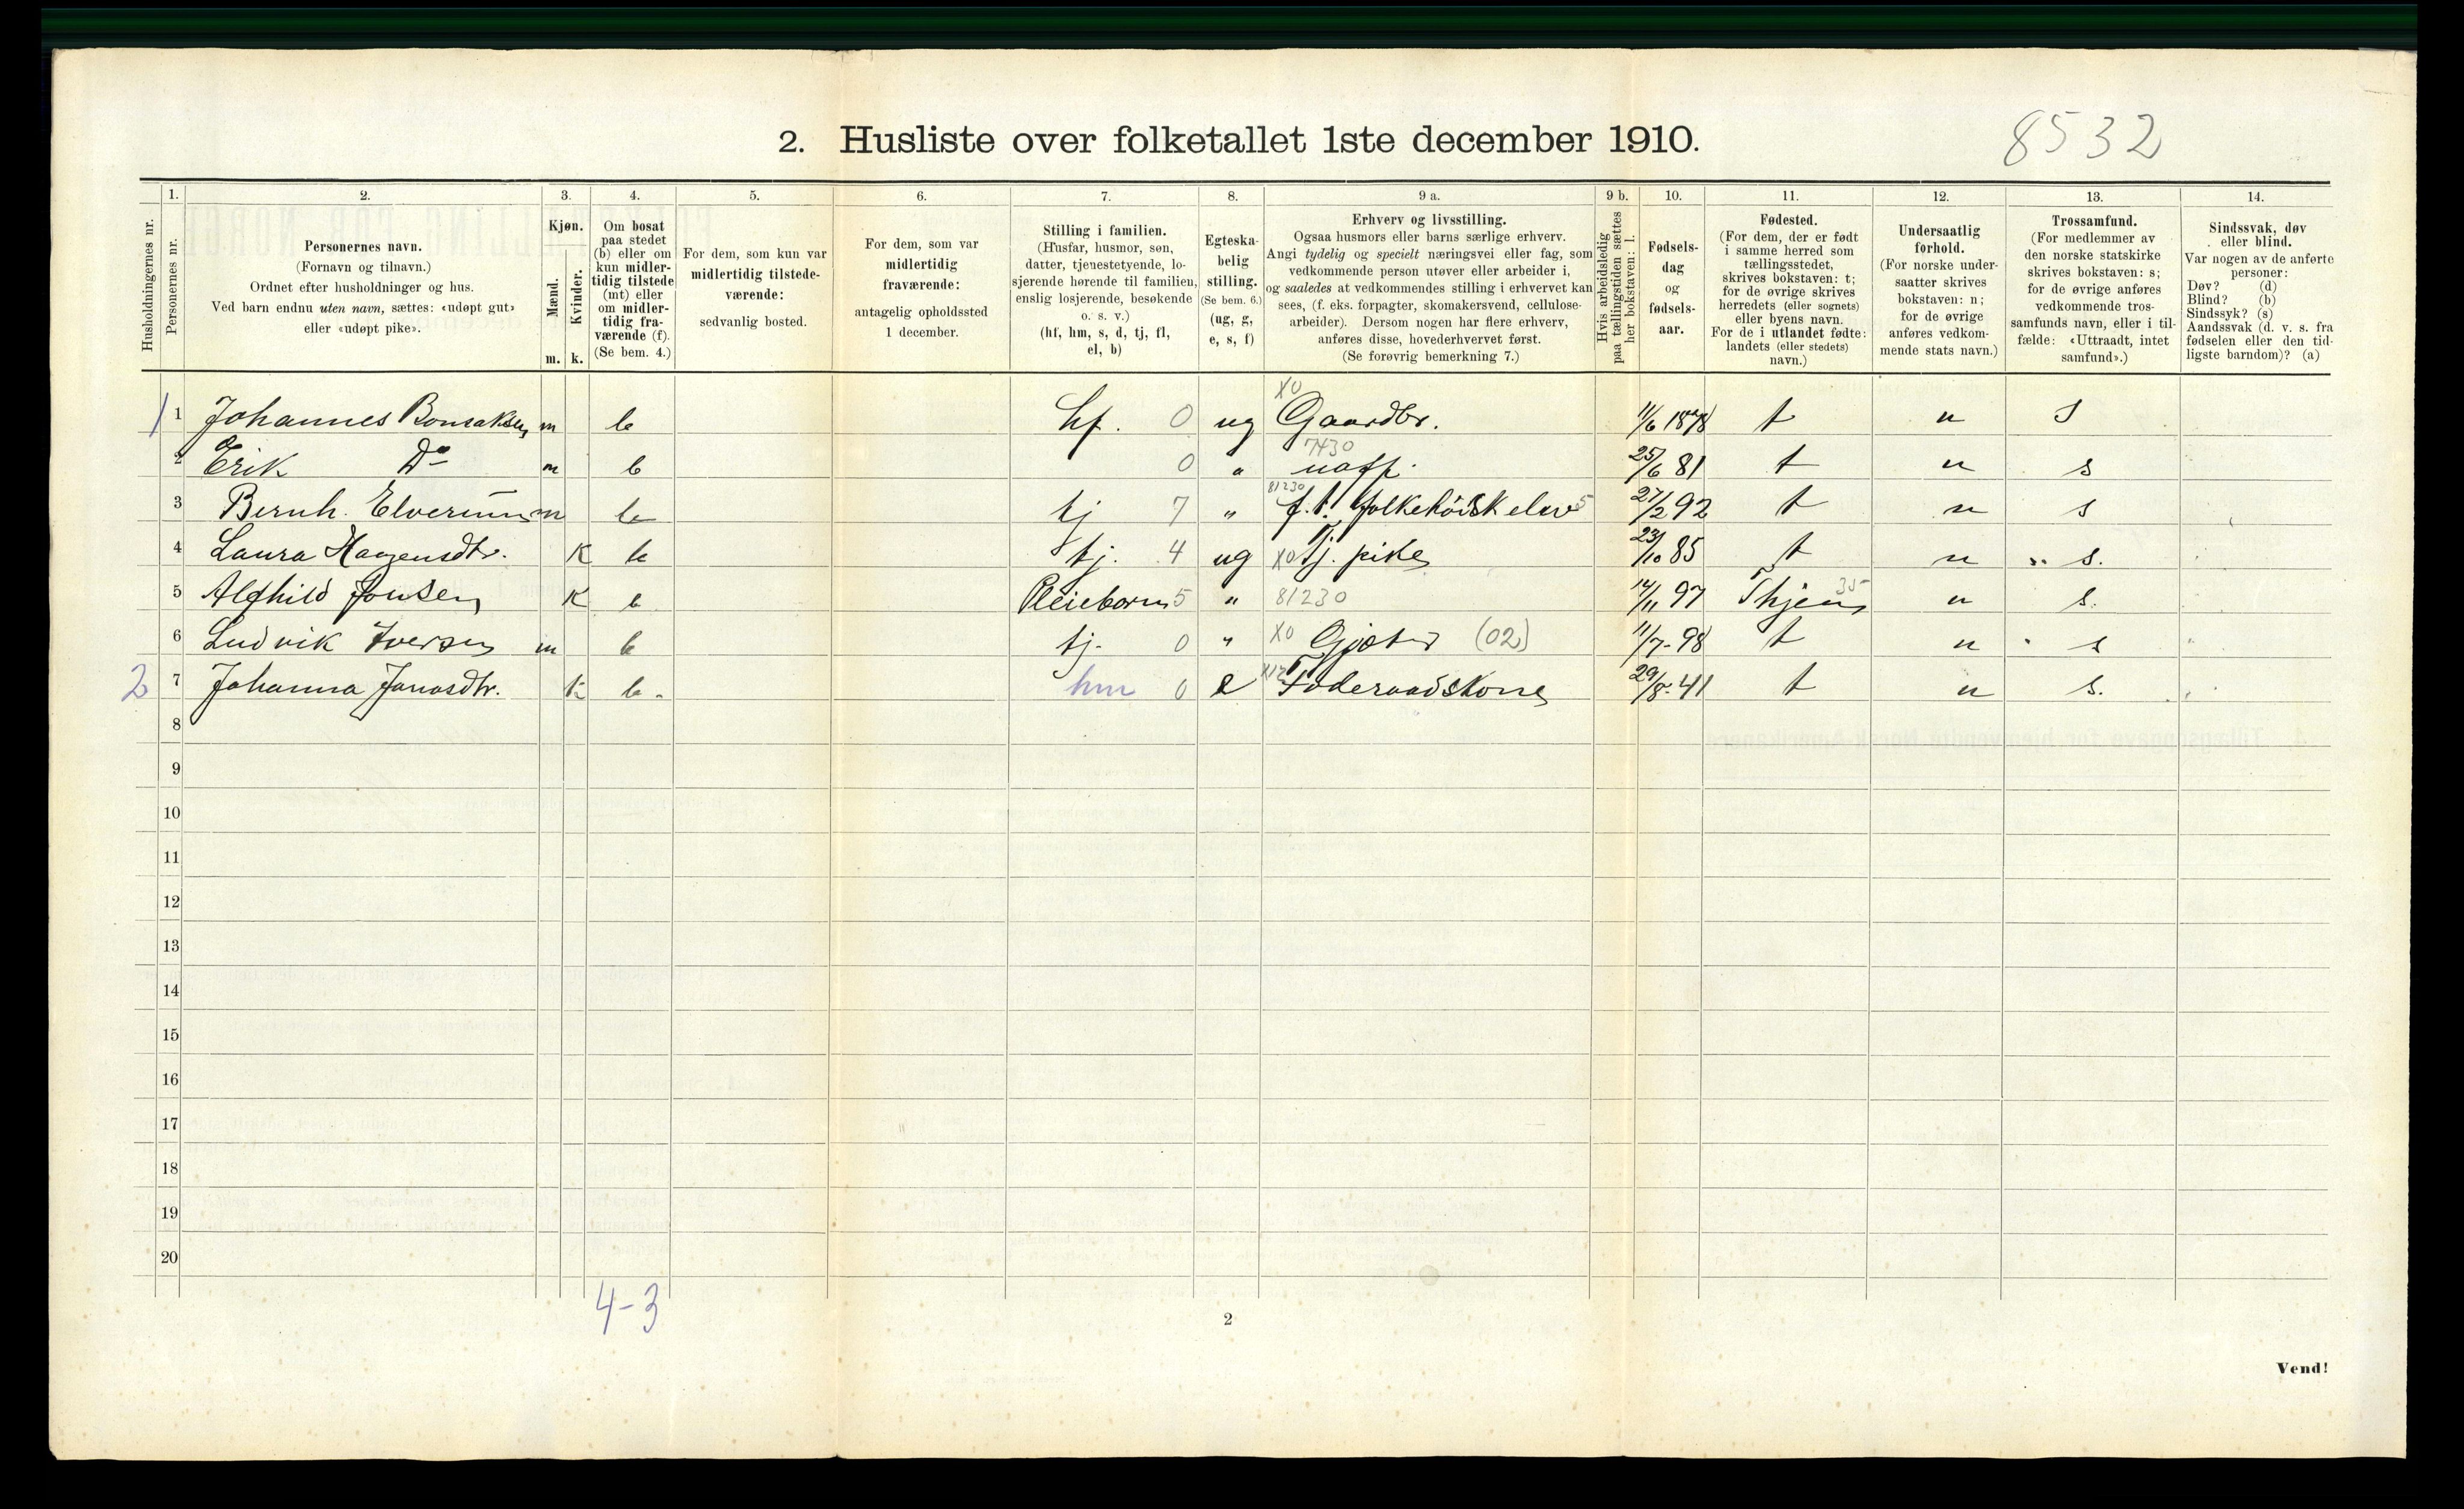 8532
2. Husliste over folketallet 1ste december 1910.
Husholdningernes nr.
1. Personernes nr.
2. Personernes navn.
(Fornavn og tilnavn.)
Ordnet efter husholdninger og hus.
Ved barn endnu uten navn, sættes: «udøpt gut»
eller «udøpt pike».
3. Kjøn.
Mænd. m.
Kvinder. k.
4. Om bosat
paa stedet
(b) eller om
kun midler-
tidig tilstede
(mt) eller
om midler-
tidig fra-
værende (f).
(Se bem. 4.)
5. For dem, som kun var
midlertidig tilstede-
værende:
sedvanlig bosted.
6. For dem, som var
midlertidig
fraværende:
antagelig opholdssted
1 december.
7. Stilling i familien.
(Husfar, husmor, søn,
datter, tjenestetyende, lo-
sjerende hørende til familien,
enslig losjerende, besøkende
o. s. v.)
(hf, hm, s, d, tj, fl,
el, b)
8. Egteska-
belig
stilling.
(Se bem. 6.)
(ug, g,
e, s, f)
9 a. Erhverv og livsstilling.
Ogsaa husmors eller barns særlige erhverv.
Angi tydelig og specielt næringsvei eller fag, som
vedkommende person utøver eller arbeider i,
og saaledes at vedkommendes stilling i erhvervet kan
sees, (f. eks. forpagter, skomakersvend, cellulose-
arbeider). Dersom nogen har flere erhverv,
anføres disse, hovederhvervet først.
(Se forøvrig bemerkning 7.)
9 b. Hvis arbeidsledig
paa tællingstiden sættes
her bokstaven: l.
10. Fødsels-
dag
og
fødsels-
aar.
11. Fødested.
(For dem, der er født
i samme herred som
tællingsstedet,
skrives bokstaven: t;
for de øvrige skrives
herredets (eller sognets)
eller byens navn.
For de i utlandet fødte:
landets (eller stedets)
navn.)
12. Undersaatlig
forhold.
(For norske under-
saatter skrives
bokstaven: n;
for de øvrige
anføres vedkom-
mende stats navn.)
13. Trossamfund.
(For medlemmer av
den norske statskirke
skrives bokstaven: s;
for de øvrige anføres
vedkommende tros-
samfunds navn, eller i til-
fælde: «Uttraadt, intet
samfund».)
14. Sindssvak, døv
eller blind.
Var nogen av de anførte
personer:
Døv? (d)
Blind? (b)
Sindssyk? (s)
Aandssvak (d. v. s. fra
fødselen eller den tid-
ligste barndom)? (a)
1 1 Johannes Bonsaksen m b hf. 0 ug X0 Gaardbr. 11/6 1878 t n s
2 Erik Do m b 0 " 7430 uoff. 25/6 81 t n s
3 Bernh. Elverum m b tj 7 " 81230 f. t. folkehöisk elev 5 27/2 92 t n s
4 Laura Hagensdtr. K b tj. 4 ug X0 Tj. pike 23/10 85 t n s.
5 Alfhild Jonsen K b Pleiebarn 5 " 81230 14/11 97 Thjem 35 n s.
6 Ludvik Iversen m b tj. 0 " X0 Gjæter (02) 11/7-98 t n s
2 7 Johanna Jonasdtr. k b. hm 0 e X12 Föderaadskone 29/8-41 t n s.
8
9
10
11
12
13
14
15
16
17
18
19
20
4-3
2
Vend!